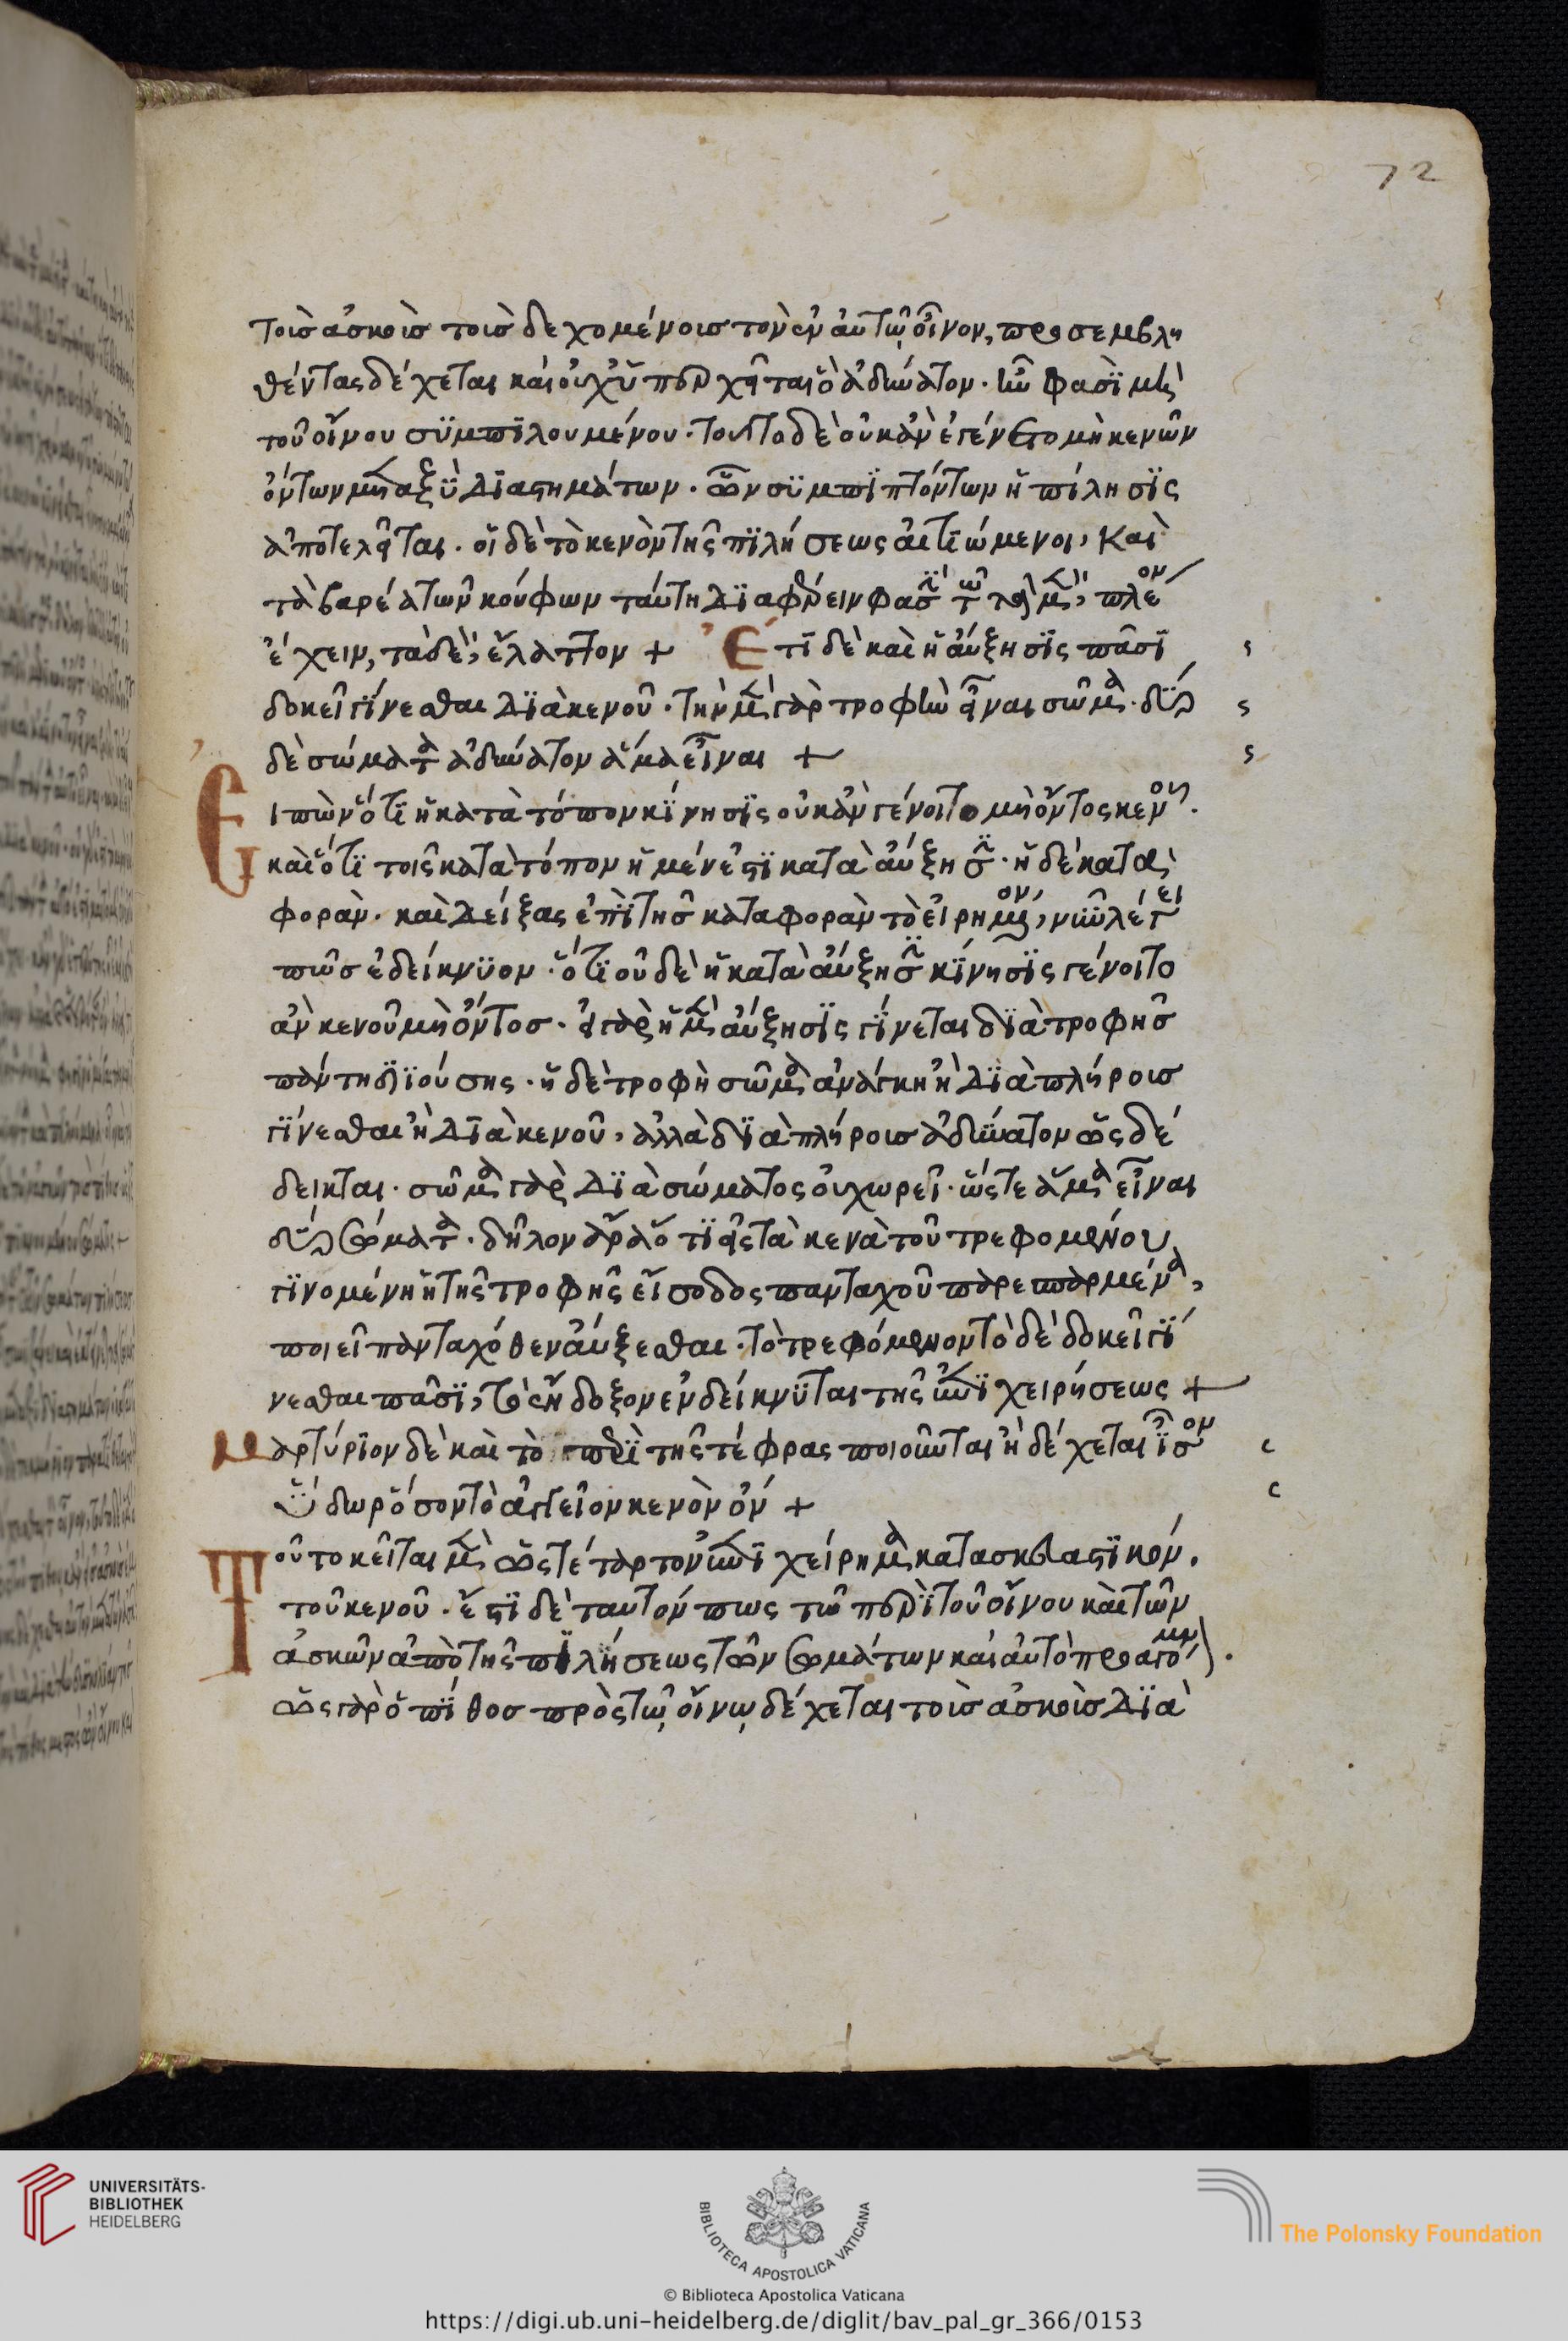 72
τοῖς ἀσκοῖς τοῖς δεχομένοις τὸν ἐν αὐτῶ οἶνον, προσεμβλη
θέντας δέχεται καὶ οὐχ ὑπερχεῖται ὃ ἀδύνατον. ἦν φασὶ μὴ
τοῦ οἴνου συμπιλουμένου. τοῦτο δὲ οὐκ ἂν ἐγένετο μὴ κενῶν
ὄντων μεταξὺ διαστημάτων. ὧν συμπιπτόντων ἡ πίλησις
ἀποτελεῖται. οἱ δὲ τὸ κενὸν τῆς πιλήσεως αἰτιώμενοι, καὶ
τὰ βαρέα τῶν κούφων ταύτη διαφέρειν φασὶ τῶ τὰ μὲν, πλέον
ἔχειν, τὰ δὲ, ἔλαττον + Ἔτι δὲ καὶ ἡ αὔξησις πᾶσι
δοκεῖ γίνεσθαι διὰ κενοῦ. τὴν μὲν γὰρ τροφὴν εἶναι σῶμα. δύο
δὲ σώματα ἀδύνατον ἅμα εἶναι +
Ειπὼν ὅτι ἡ κατὰ τόπον κίνησις οὐκ ἂν γένοιτο μὴ ὄντος κενοῦ.
καὶ ὅτι τοῖς κατὰ τόπον ἡ μέν ἐστι κατὰ αὔξησιν. ἡ δὲ κατὰ
φορὰν. καὶ δείξας ἐπὶ τῆς κατὰ φορὰν τὸ εἰρημένον, νῦν λέγει
πῶς ἐδείκνυον. ὅτι οὐδὲ ἡ κατὰ αὔξησιν κίνησις γένοιτο
ἂν κενοῦ μὴ ὄντος. εἰ γὰρ ἡ μὲν αὔξησις γίνεται διὰ τροφῆς
πάντη διϊούσης. ἡ δὲ τροφὴ σῶμα ἀνάγκη ἢ διὰ πλήροις
γίνεσθαι ἢ διὰ κενοῦ, ἀλλὰ διὰ πλήροις ἀδύνατον ὡς δέ
δεικται. σῶμα γὰρ διὰ σώματος οὐ χωρεῖ. ὥστε ἅμα εἶναι
δύο σώματα. δῆλον ἄρα ὅτι εἰς τὰ κενὰ τοῦ τρεφομένου
γινομένη ἡ τῆς τροφῆς εἴσοδος πανταχοῦ παρεσπαρμένα,
ποιεῖ πανταχόθεν αὔξεσθαι. τὸ τρεφόμενον τὸ δὲ δοκεῖ γί
νεσθαι πᾶσι, τὸ ἔνδοξον ἐνδείκνυται τῆς ἐπιχειρήσεως +
Μαρτύριον δὲ καὶ τὸ περὶ τῆς τέφρας ποιοῦνται ἢ δέχεται ἴσον
ὕδωρ ὅσον τὸ ἀγγεῖον κενὸν ὄν +
Τοῦτο κεῖται μὲν ὡς τέταρτον ἐπιχείρημα κατασκευαστικόν.
τοῦ κενοῦ. ἔστι δὲ ταυτόν πως τῶ περὶ τοῦ οἴνου καὶ τῶν
ἀσκῶν ἀπὸ τῆς πιλήσεως τῶν σωμάτων καὶ αὐτὸ προαγόμενον.
ὡς γὰρ ὁ πίθος πρὸς τῶ οἴνω δέχεται τοῖς ἀσκοῖς διὰ
UNIVERSITÄTS-
BIBLIOTHEK
HEIDELBERG
BIBLIOTECA APOSTOLICA VATICANA
The Polonsky Foundation
© Biblioteca Apostolica Vaticana
https://digi.ub.uni-heidelberg.de/diglit/bav_pal_gr_366/0153